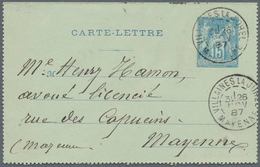 CARTE-LETTRE
VILLAINES LA JUHEL
15
Mr Henry Hamon,
avoué licencié
rue des Capucins
Mayenne
(Mayenne)
VILLAINES LA JUHEL
26
87
MAYENNE